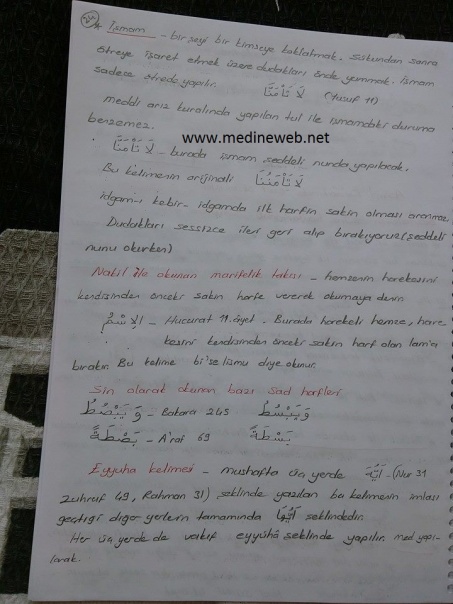 24
* İşmam - bir şeyi bir kimseye koklatmak. Sükundan sonra
ötreye işaret etmek üzere dudakları önde yummak. İşmam
sadece ötrede yapılır. لَا تَأْمَنَّا (Yusuf 11)
meddi arız kuralında yapılan tul ile işmamdaki duruma
benzemez.
www.medineweb.net
لَا تَأْمَنَّا - burada işmam şeddeli nunda yapılacak.
Bu kelimenin orijinali لَا تَأْمَنُنَا
idgam-ı kebir - idgamda ilk harfin sakin olması aranmaz.
Dudakları sessizce ileri geri alıp bırakıyoruz (şeddeli
nunu okurken)
Nakil ile okunan marifelik takısı - hemzenin harekesini
kendisinden önceki sakin harfe vererek okumaya denir
الِاسْمُ - Hucurat 11. ayet - Burada harekeli hemze, hare
kesini kendisinden önceki sakin harf olan lam'a
bırakır. Bu kelime bi'se lismu diye okunur.
Sin olarak okunan bazı Sad harfleri
وَيَبْصُطُ - Bakara 245 وَيَبْسُطُ
بَصْطَةً - A'raf 69 بَسْطَةً
Eyyuha kelimesi - mushafta üç yerde أَيُّهَ - (Nur 31
Zuhruf 49, Rahman 31) şeklinde yazılan bu kelimenin imlası
geçtiği diğer yerlerin tamamında أَيُّهَا şeklindedir.
Her üç yerde de vakıf eyyühâ şeklinde yapılır. med yapı-
larak.